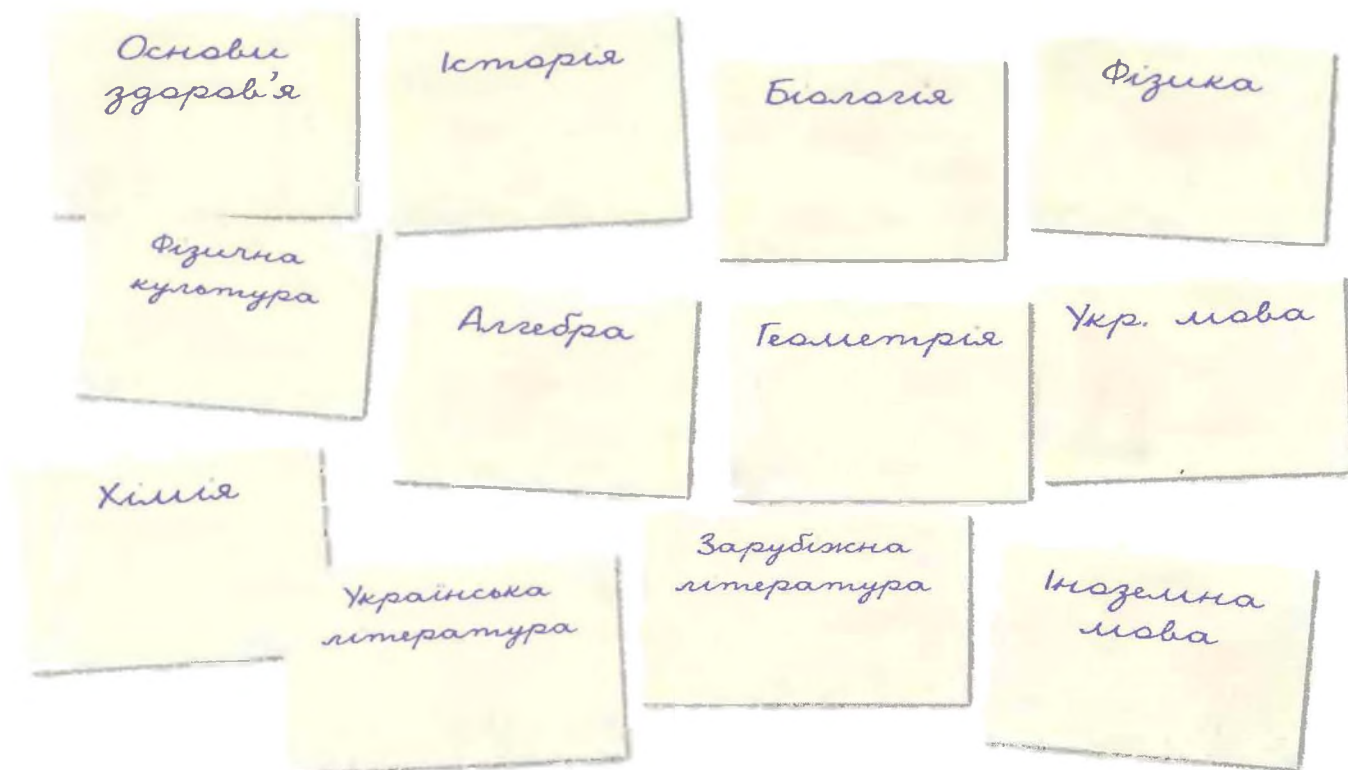 Основи
здоров'я
Історія
Біологія
Фізика
Фізична
культура
Алгебра
Геометрія
Укр. мова
Хімія
Українська
література
Зарубіжна
література
Іноземна
мова